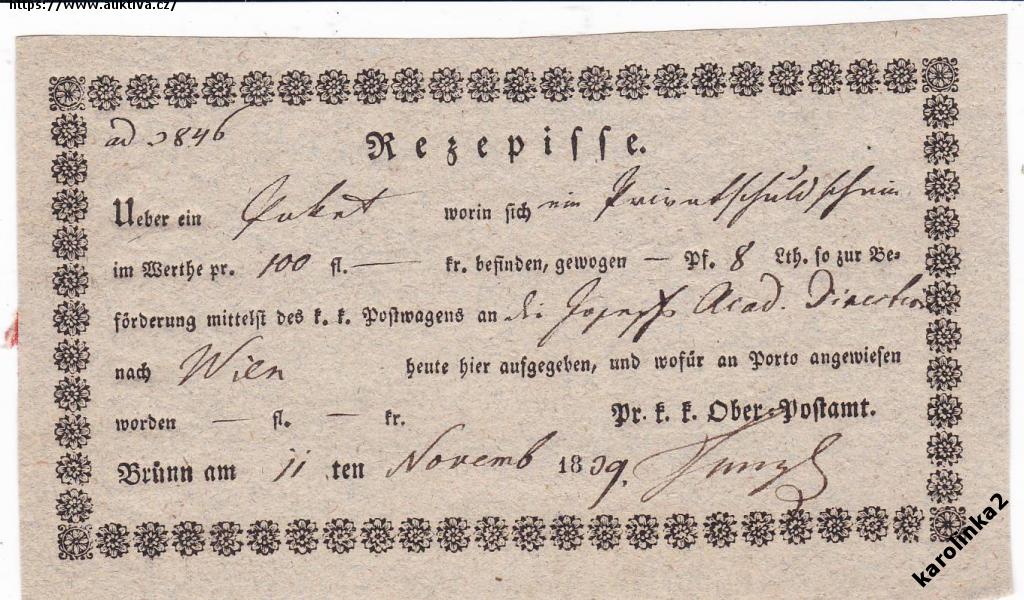 https://www.auktiva.cz/
ad 2846
Rezepisse.
Ueber ein Paket worin sich ein Privatschuldschein
im Werthe pr. 100 fl. — kr. befinden, gewogen — Pf. 8 Lth. so zur Be-
förderung mittelst des k. k. Postwagens an die Josephs Acad. Direction
nach Wien heute hier aufgegeben, und wofür an Porto angewiesen
worden — fl. — kr. Pr. k. k. Ober-Postamt.
Brünn am 11 ten Novemb 1839.
karolinka2